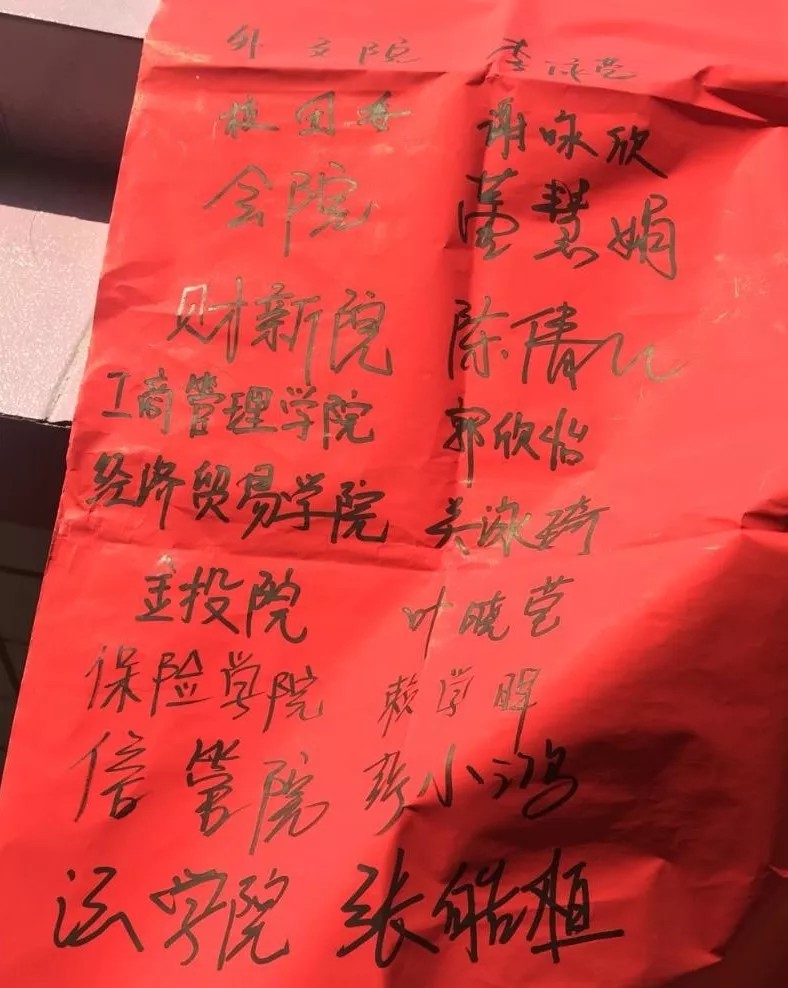 外文院 李
校团委 谢咏欣
会院 董慧娟
财新院 陈倩
工商管理学院 郭欣怡
经济贸易学院 吴泳琦
金投院 叶晓莹
保险学院 赖学晖
信管院 小鸿
法学院 张